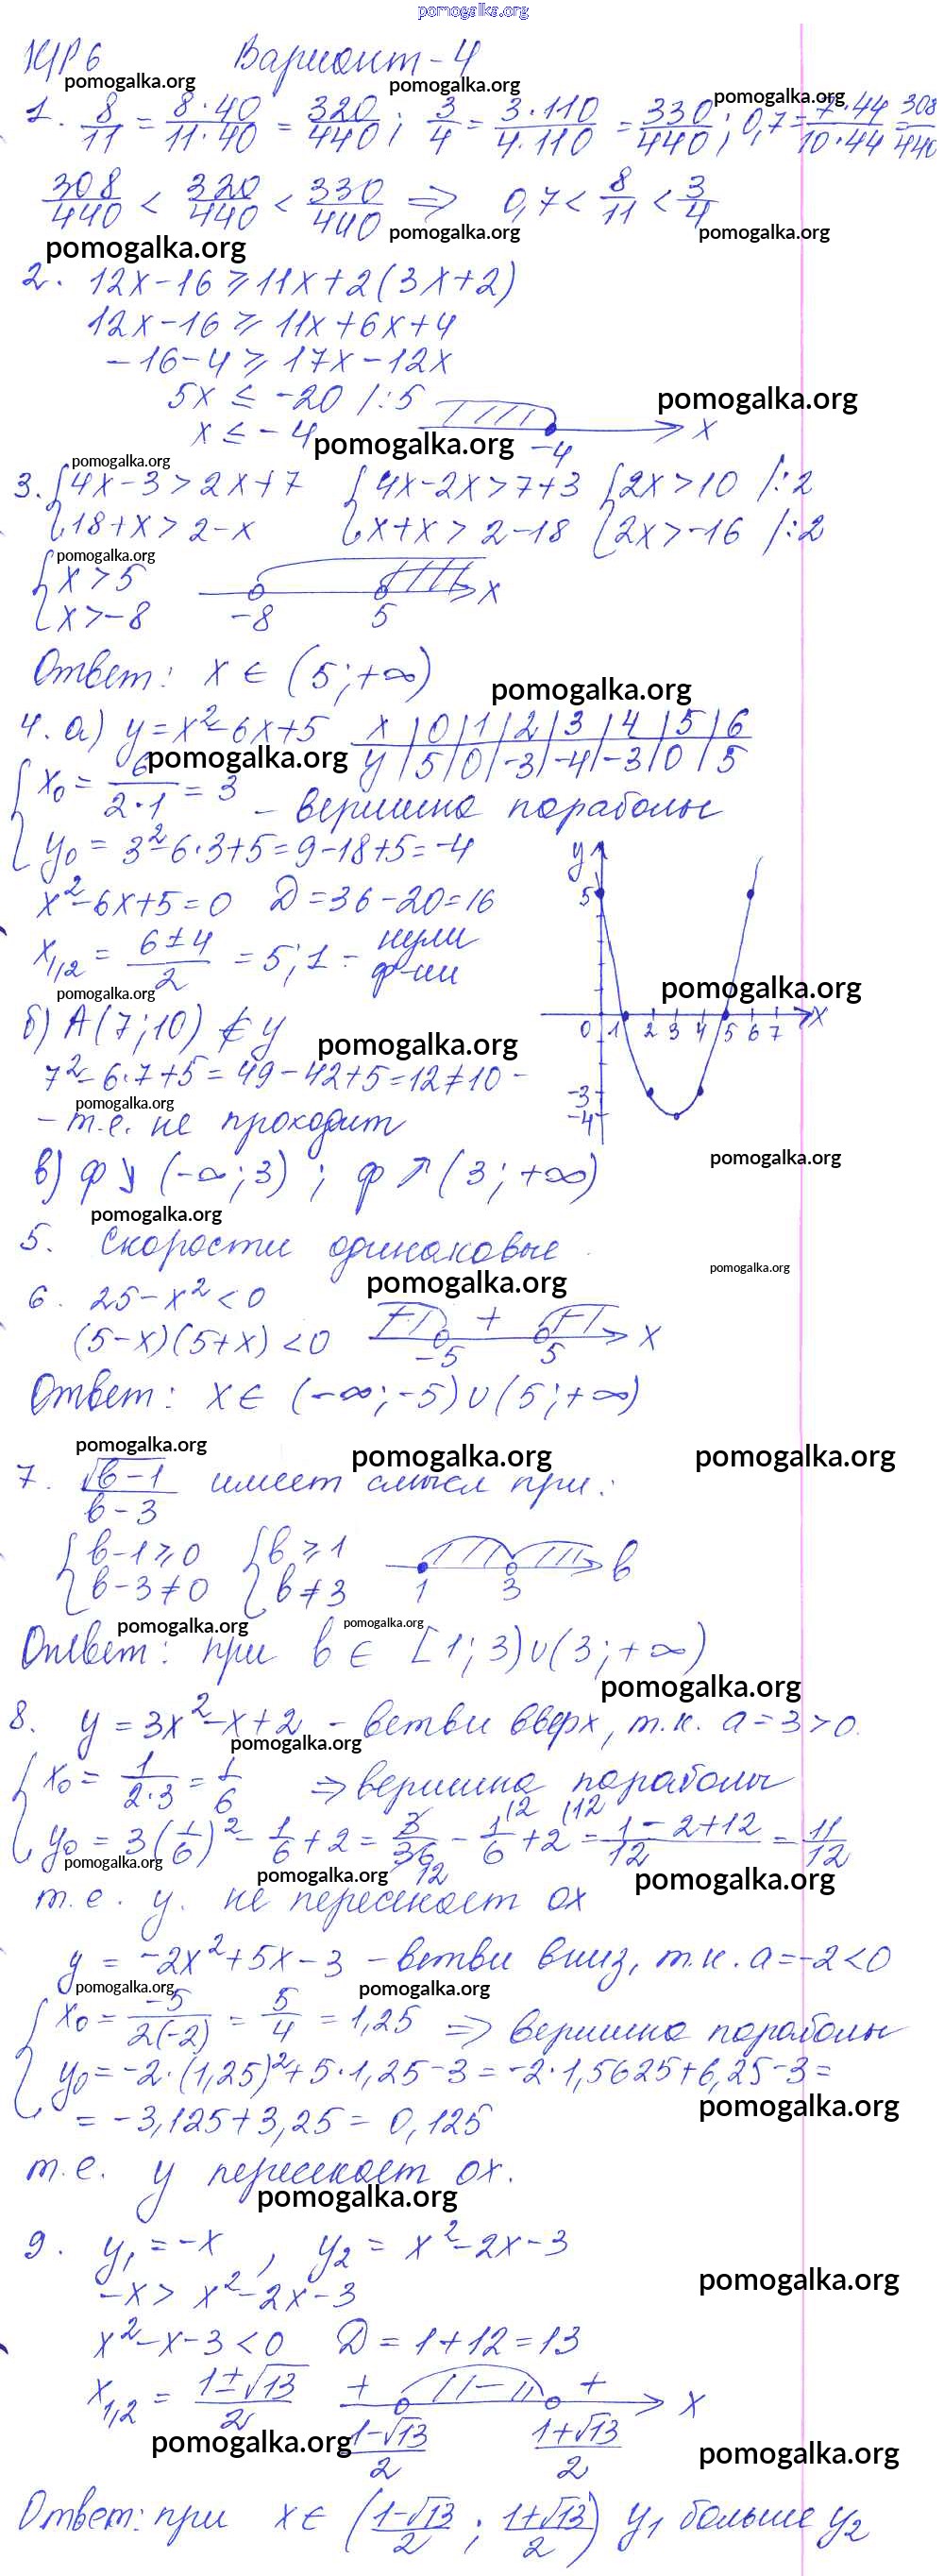 pomogalka.org
КР 6 Вариант-4
pomogalka.org pomogalka.org pomogalka.org
1. 8/11 = 8·40/11·40 = 320/440; 3/4 = 3·110/4·110 = 330/440; 0,7 = 7·44/10·44 = 308/440
308/440 < 320/440 < 330/440 => 0,7 < 8/11 < 3/4
pomogalka.org pomogalka.org pomogalka.org
2. 12x-16 ⩾ 11x+2(3x+2)
12x-16 ⩾ 11x+6x+4
-16-4 ⩾ 17x-12x
5x ≤ -20 /:5
pomogalka.org
x ≤ -4 pomogalka.org -4 x
pomogalka.org
3. {4x-3>2x+7 {4x-2x>7+3 {2x>10 /:2
{18+x>2-x {x+x>2-18 {2x>-16 /:2
pomogalka.org
{x>5
{x>-8 -8 5 x
Ответ: x ∈ (5;+∞)
pomogalka.org
4. а) y=x²-6x+5 x | 0 | 1 | 2 | 3 | 4 | 5 | 6
pomogalka.org y | 5 | 0 | -3 | -4 | -3 | 0 | 5
{x₀ = 6/2·1 = 3 - вершина параболы
{y₀ = 3²-6·3+5=9-18+5=-4
x²-6x+5=0 D=36-20=16
x₁,₂ = 6±4/2 = 5;1 - нули ф-ии
y 5 0 1 2 3 4 5 6 7 x -3 -4
pomogalka.org pomogalka.org
б) A(7;10) ∉ y
pomogalka.org
7²-6·7+5=49-42+5=12≠10 -
pomogalka.org
- т.е. не проходит
pomogalka.org
в) ф ↘ (-∞;3) ; ф ↗ (3;+∞)
pomogalka.org
5. Скорости одинаковые
pomogalka.org
pomogalka.org
6. 25-x²<0
(5-x)(5+x)<0 - + - -5 5 x
Ответ: x ∈ (-∞;-5)∪(5;+∞)
pomogalka.org pomogalka.org pomogalka.org
7. √b-1/b-3 имеет смысл при:
{b-1⩾0 {b⩾1
{b-3≠0 {b≠3 1 3 b
pomogalka.org pomogalka.org
Ответ: при b ∈ [1;3)∪(3;+∞)
pomogalka.org
8. y=3x²-x+2 - ветви вверх, т.к. a=3>0.
pomogalka.org
{x₀ = 1/2·3 = 1/6 => вершина параболы
{y₀ = 3(1/6)²-1/6+2 = 3/36 - 1/6 +2 = 1-2+12/12 = 11/12
pomogalka.org pomogalka.org pomogalka.org
т.е. y. не пересекает ox
y = -2x²+5x-3 - ветви вниз, т.к. a=-2<0
pomogalka.org pomogalka.org
{x₀ = -5/2(-2) = 5/4 = 1,25 => вершина параболы
{y₀ = -2·(1,25)²+5·1,25-3=-2·1,5625+6,25-3=
pomogalka.org
= -3,125+3,25= 0,125
т.е. y пересекает ox.
pomogalka.org
9. y₁=-x , y₂ = x²-2x-3
pomogalka.org
-x > x²-2x-3
x²-x-3<0 D=1+12=13
x₁,₂ = 1±√13/2 + - + x
pomogalka.org 1-√13/2 1+√13/2
pomogalka.org
Ответ: при x ∈ (1-√13/2 ; 1+√13/2) y₁ больше y₂